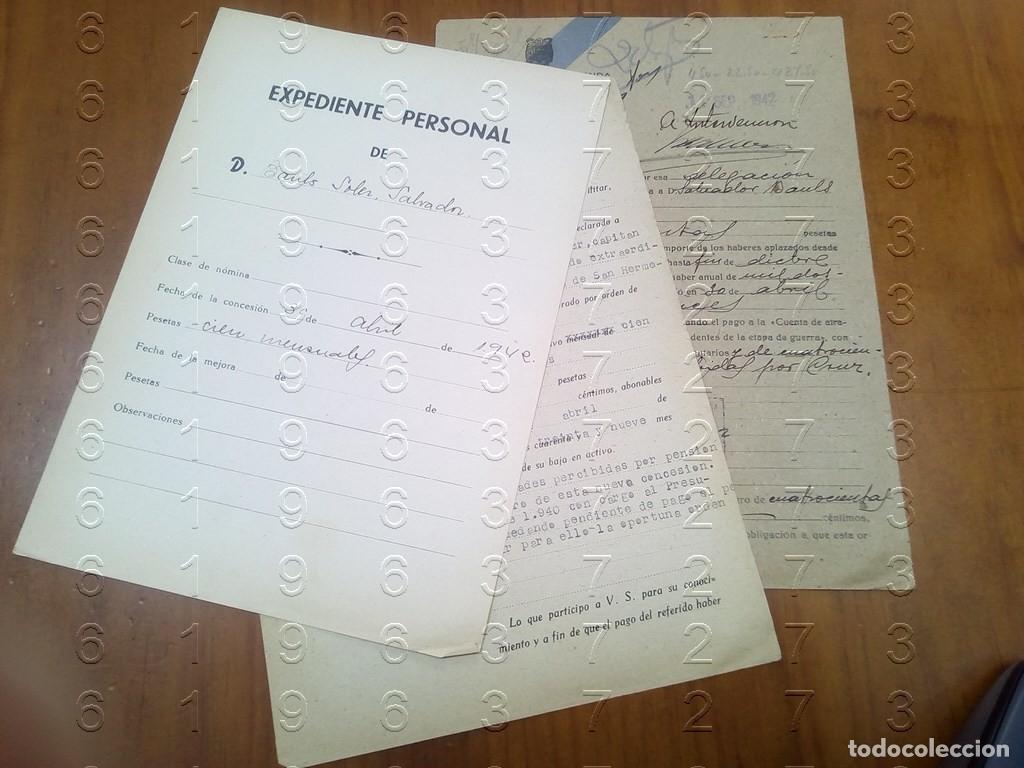 EXPEDIENTE PERSONAL
DE
D. Bauls Soler, Salvador.
Clase de nómina
Fecha de la concesión de abril de 194
Pesetas cien mensuales
Fecha de la mejora de de
Pesetas
Observaciones
militar,
declarado a
capitan
de extraordi-
de San Herme-
rado por orden de
mensual de cien
pesetas
céntimos, abonables
abril de
cuarenta y treinta y nueve mes
de su baja en activo.
ades percibidas por pensión
de esta nueva concesion.
1.940 con cargo al Presu-
edando pendiente de pago el
para ello la oportuna orden
Lo que participo a V. S. para su conoci-
miento y a fin de que el pago del referido haber
SEP. 1942
A Intervencion
esa delegación
a D. Salvador Bauls
pesetas
importe de los haberes aplazados desde
hasta fin de dicbre
haber anual de mil dos-
en 20 de abril
ando el pago a la «Cuenta de atra-
dentes de la etapa de guerra», con
y de cuatrocien-
por Cruz.
de cuatrocientas
céntimos,
obligación a, que esta or
6 1 9 6 3 7 2 7 3
todocoleccion